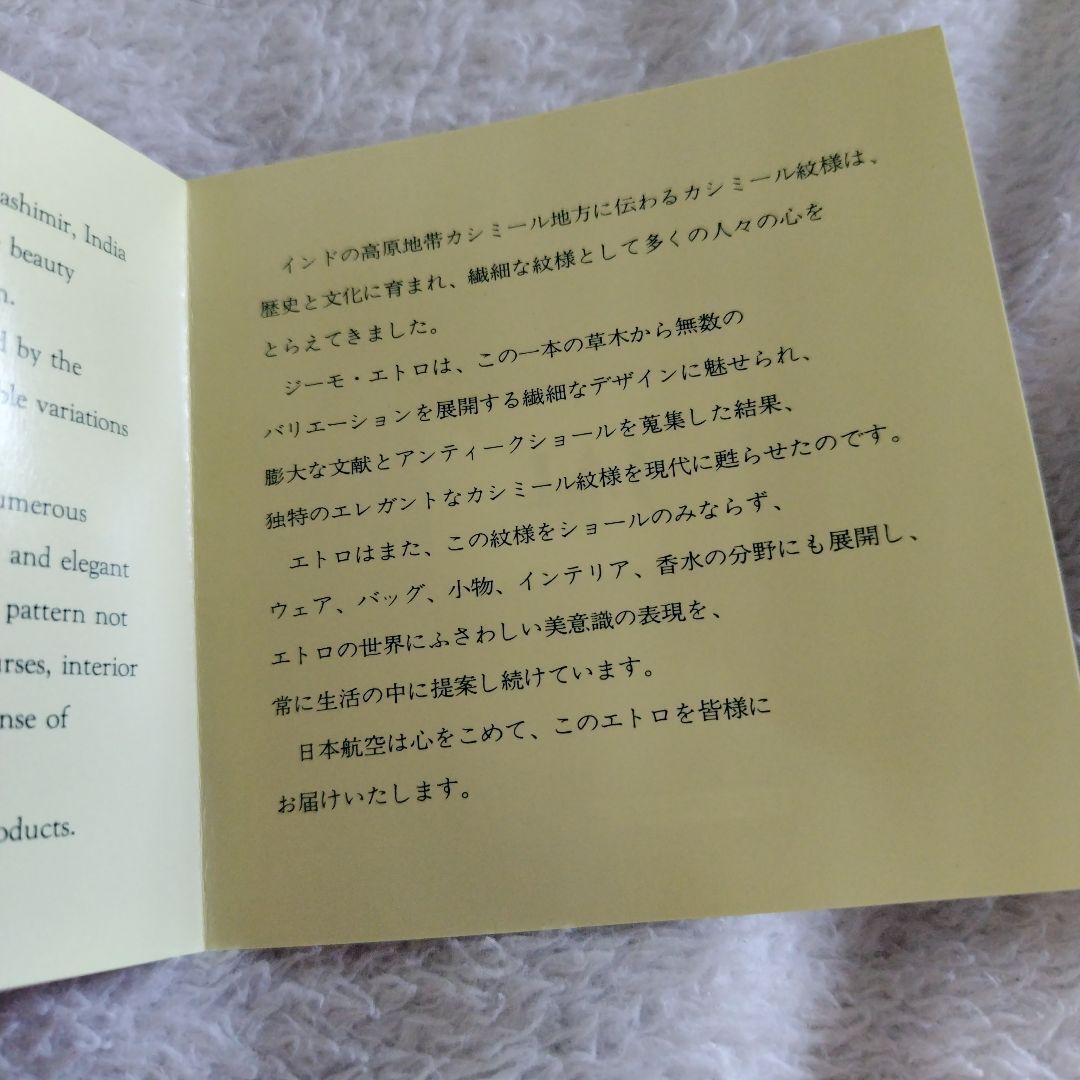 ashimir, India
beauty
by the
variations
umerous
and elegant
pattern not
interior
nse of
oducts.
インドの高原地帯カシミール地方に伝わるカシミール紋様は、
歴史と文化に育まれ、繊細な紋様として多くの人々の心を
とらえてきました。
ジーモ・エトロは、この一本の草木から無数の
バリエーションを展開する繊細なデザインに魅せられ、
膨大な文献とアンティークショールを蒐集した結果、
独特のエレガントなカシミール紋様を現代に甦らせたのです。
エトロはまた、この紋様をショールのみならず、
ウェア、バッグ、小物、インテリア、香水の分野にも展開し、
エトロの世界にふさわしい美意識の表現を、
常に生活の中に提案し続けています。
日本航空は心をこめて、このエトロを皆様に
お届けいたします。